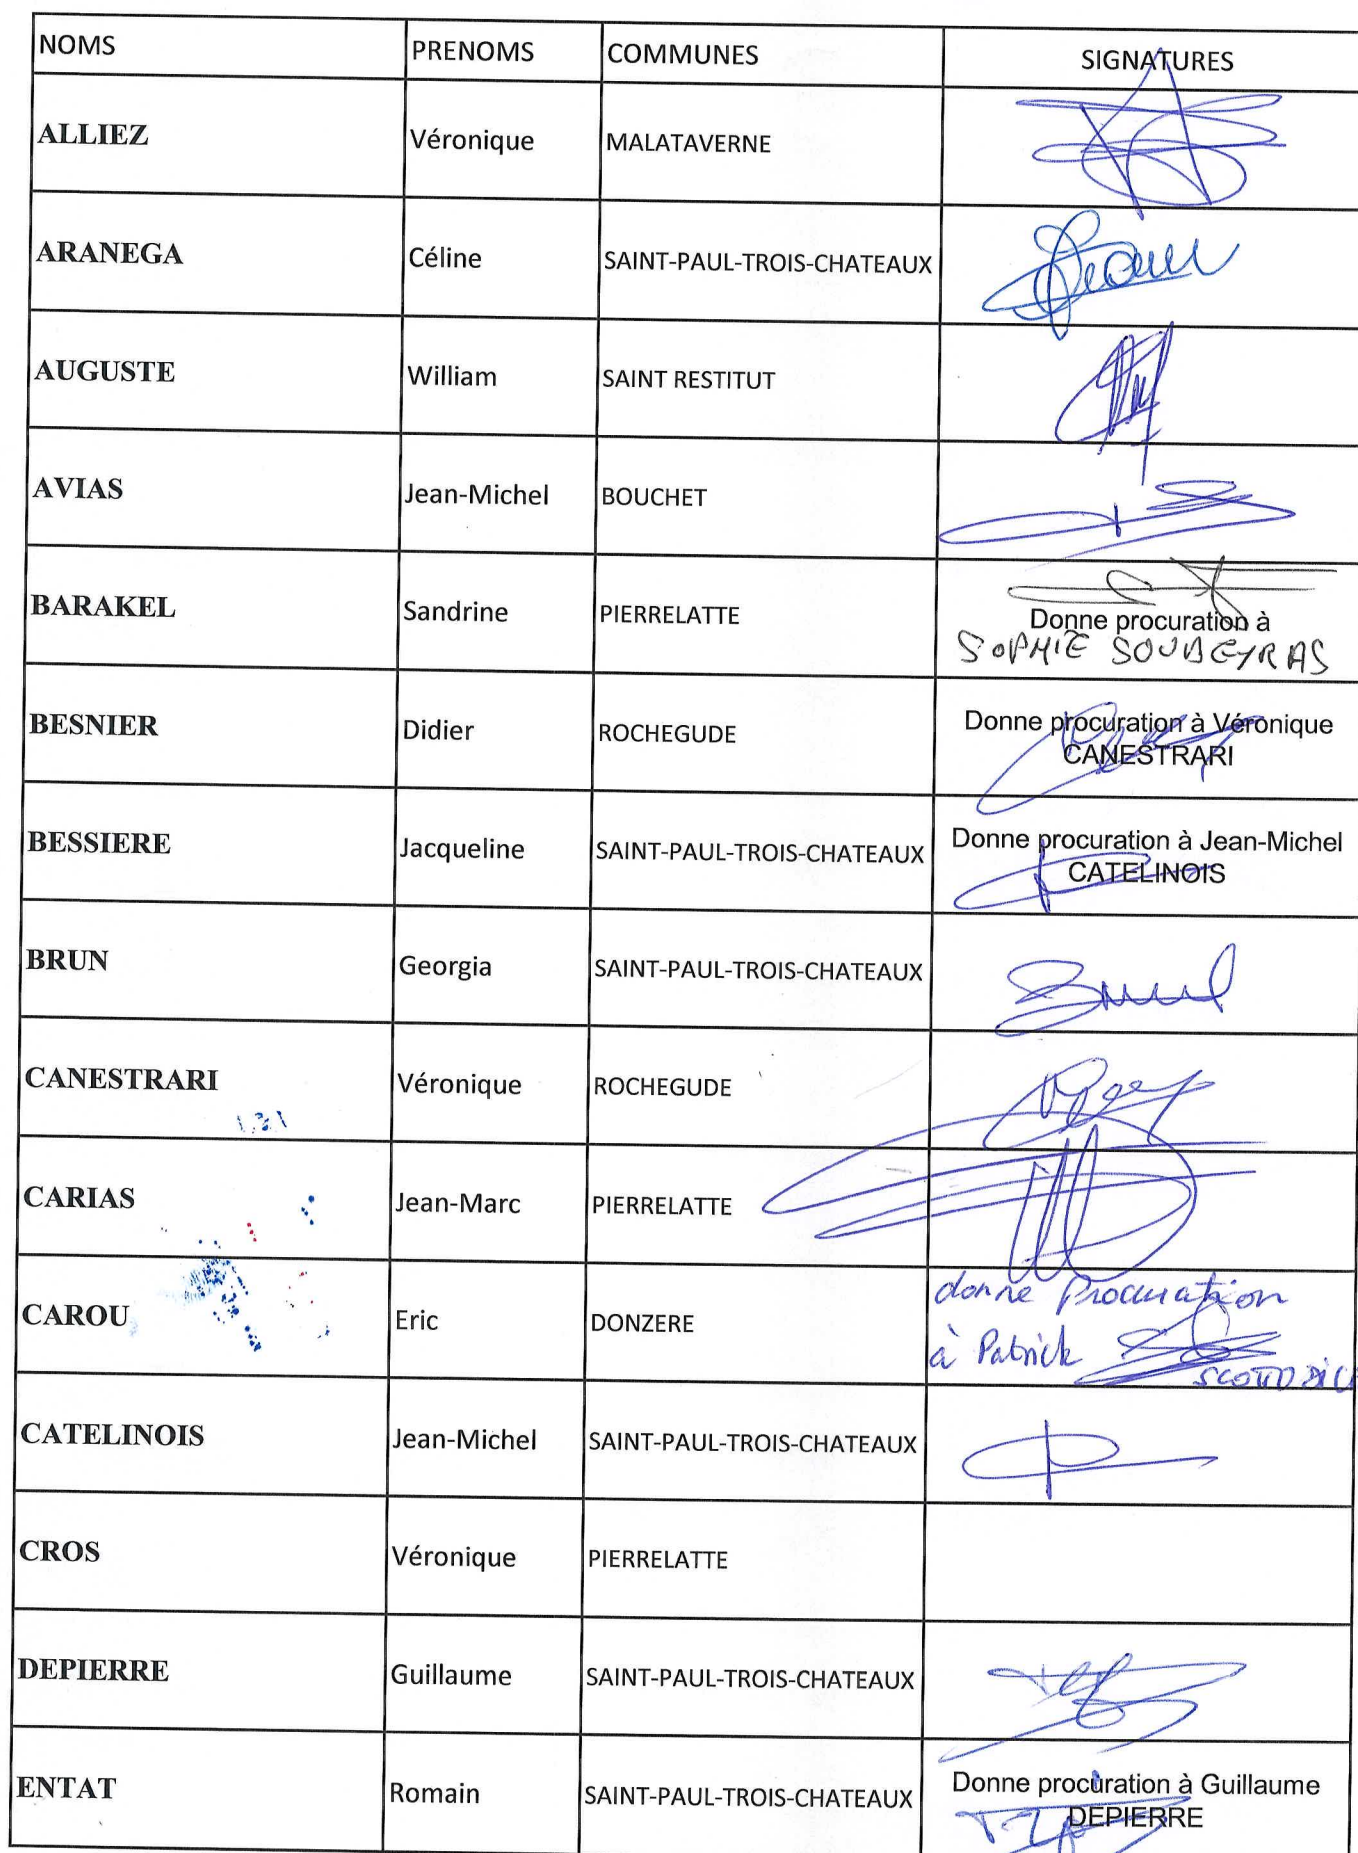 NOMS PRENOMS COMMUNES SIGNATURES
ALLIEZ Véronique MALATAVERNE
ARANEGA Céline SAINT-PAUL-TROIS-CHATEAUX
AUGUSTE William SAINT RESTITUT
AVIAS Jean-Michel BOUCHET
BARAKEL Sandrine PIERRELATTE Donne procuration à
SOPHIE SOUBEYRAS
BESNIER Didier ROCHEGUDE Donne procuration à Véronique
CANESTRARI
BESSIERE Jacqueline SAINT-PAUL-TROIS-CHATEAUX Donne procuration à Jean-Michel
CATELINOIS
BRUN Georgia SAINT-PAUL-TROIS-CHATEAUX
CANESTRARI Véronique ROCHEGUDE
CARIAS Jean-Marc PIERRELATTE
CAROU Eric DONZERE donne procuration
à Patrick
CATELINOIS Jean-Michel SAINT-PAUL-TROIS-CHATEAUX
CROS Véronique PIERRELATTE
DEPIERRE Guillaume SAINT-PAUL-TROIS-CHATEAUX
ENTAT Romain SAINT-PAUL-TROIS-CHATEAUX Donne procuration à Guillaume
DEPIERRE